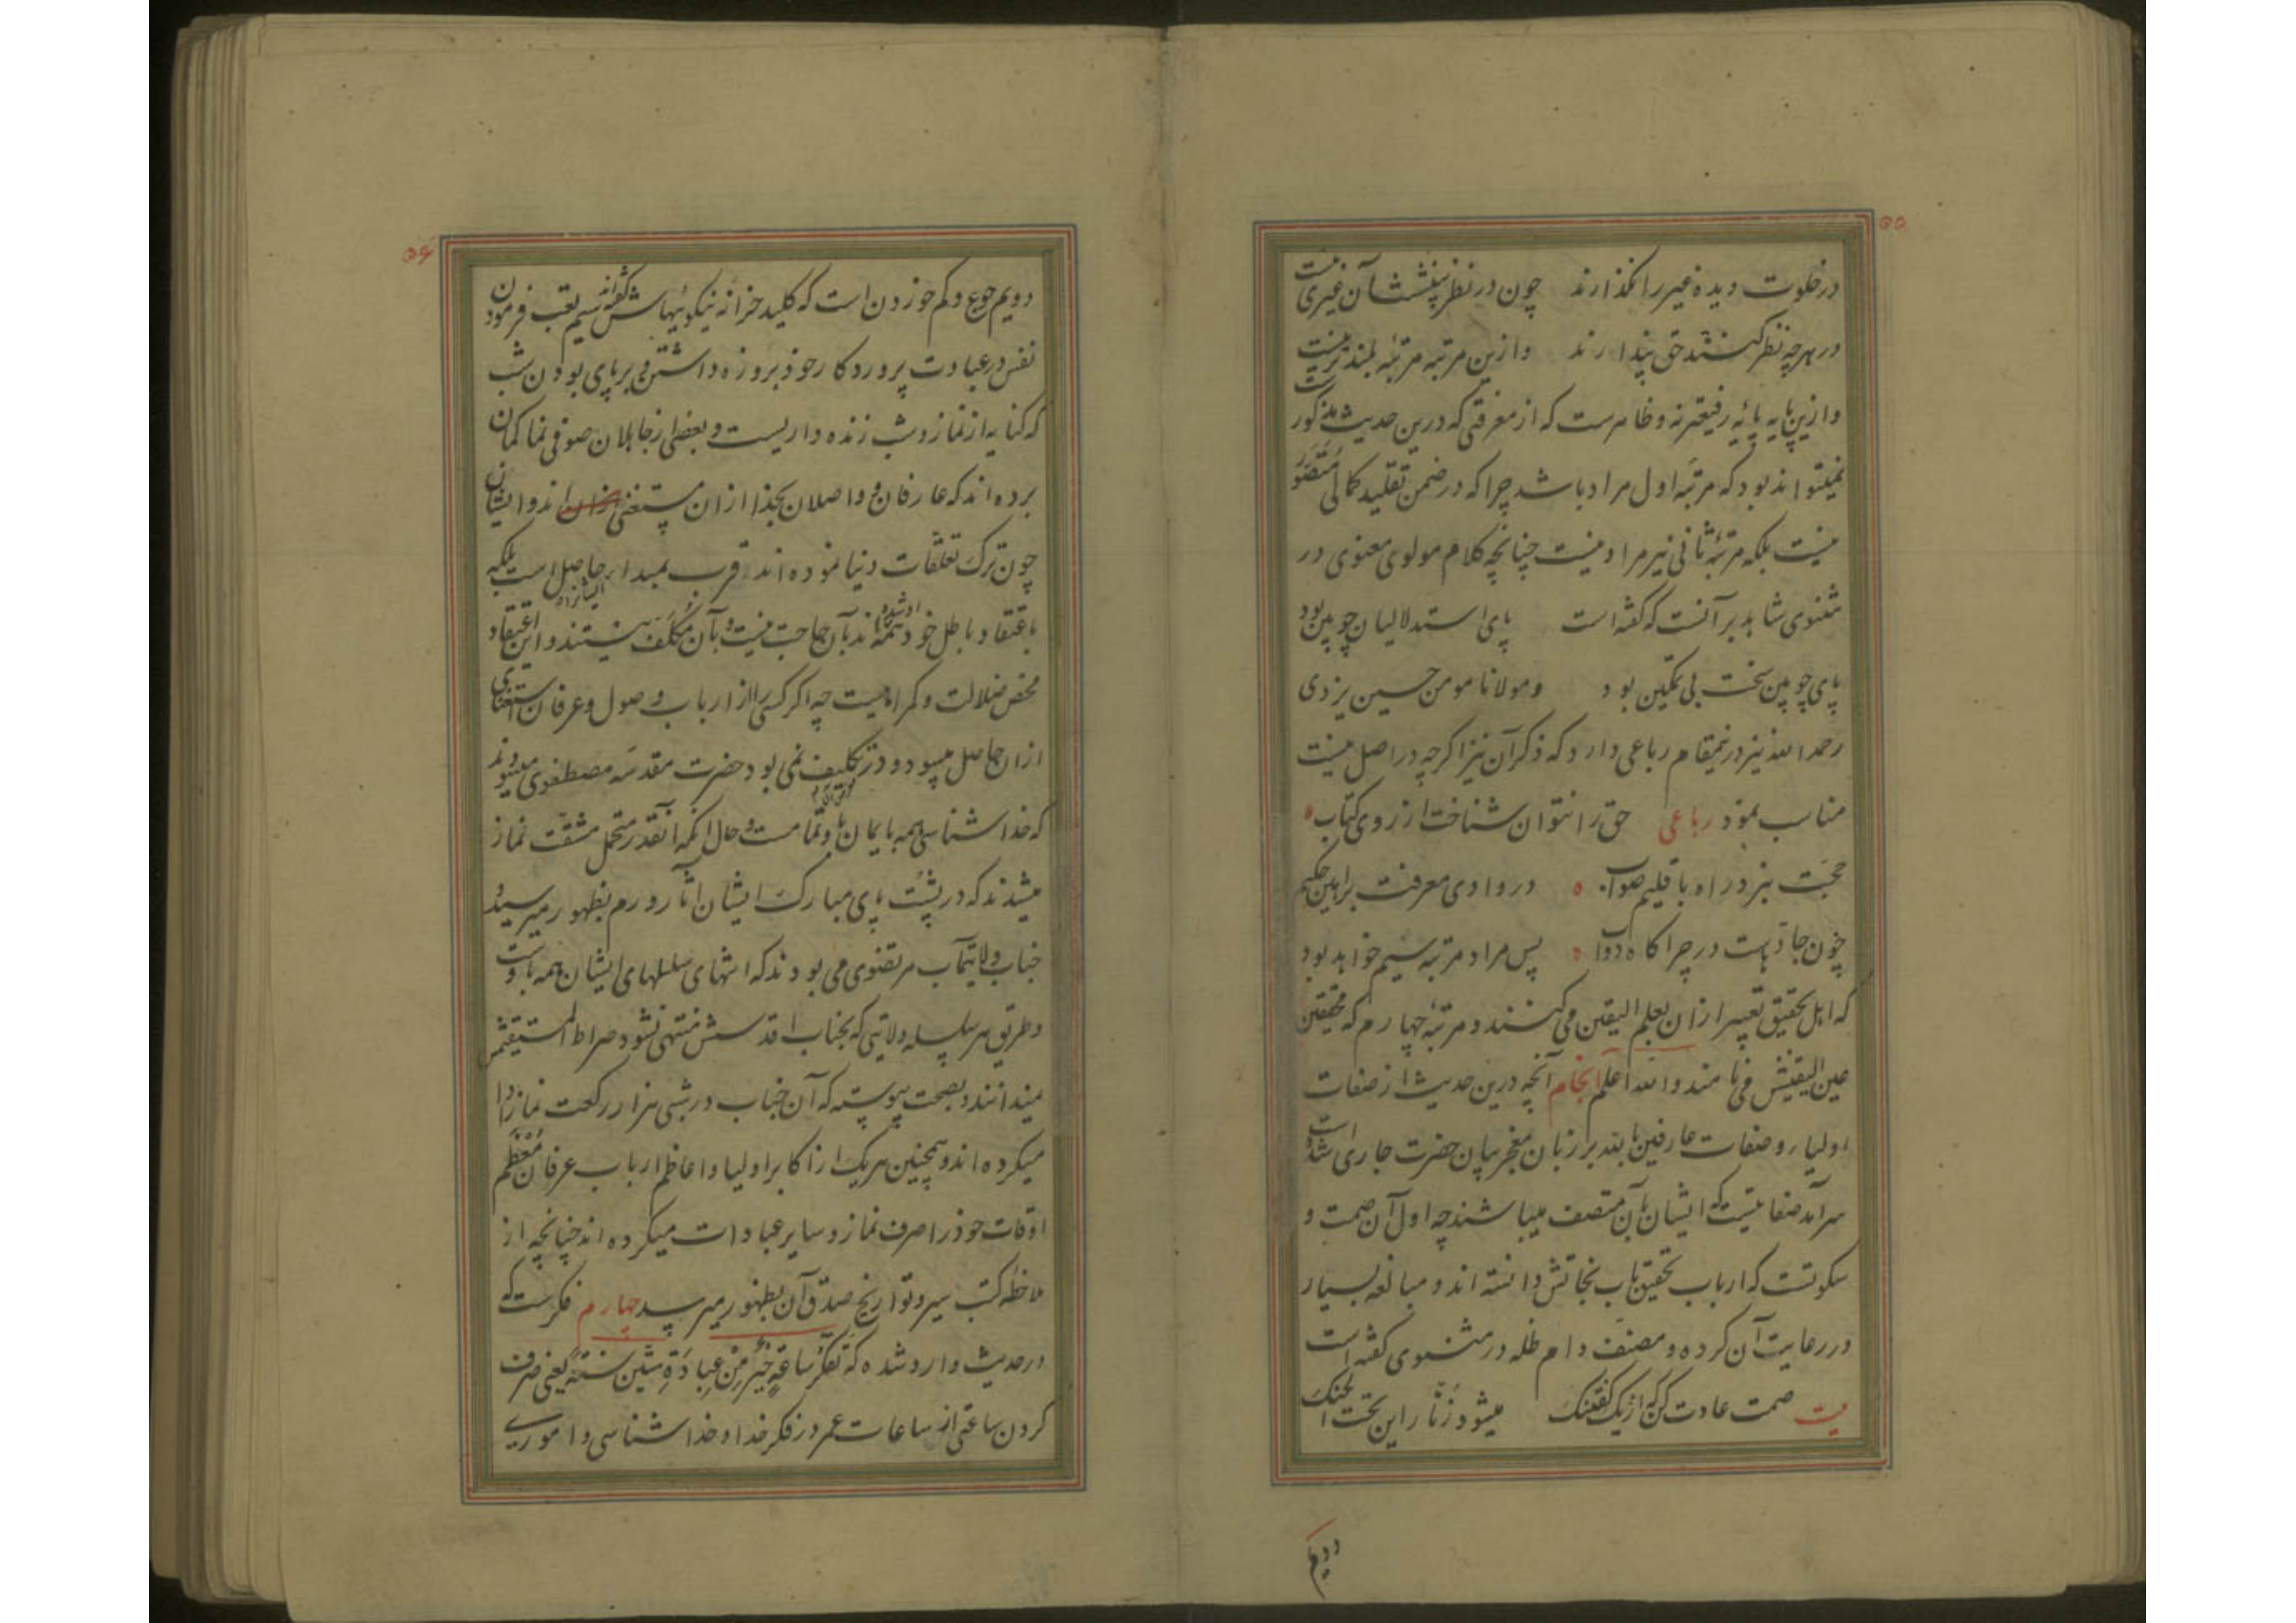 ۵۵
در خلوت دیده غیر را نگذارند چون در نظر بینششان غیری نیست
در هر چه نظر کنند حق پندارند و ازین مرتبه مرتبهٔ بلندتر نیست
و ازین پایه پائه رفیعتر نه و ظاهرست که از معرفتی که درین حدیث مذکور است
نمیتواند بود که مرتبهٔ اول مراد باشد چرا که در ضمن تقلید کمالی متصوّر
نیست بلکه مرتبهٔ ثانی نیز مراد نیست چنانچه کلام مولوی معنوی در
مثنوی شاهد بر آنست که گفته است پای استدلالیان چوبین بود
پای چوبین سخت بی تمکین بود و مولانا مومن حسین یزدی
رحمه الله نیز درینمقام رباعی دارد که ذکر آن نیز اگرچه در اصل نیست
مناسب نمود رباعی حق را نتوان شناخت از روی کتاب
حجّت نبرد راه باقلیم صواب در وادی معرفت براهین حکیم
چون جادّهاست در چراگاه دواب پس مراد مرتبه سیم خواهد بود
که اهل تحقیق تعبیر از ان بعلم الیقین می کنند و مرتبهٔ چهارم که محققین
عین الیقینش می نامند والله اعلم انجام آنچه درین حدیث از صفات
اولیا و صفات عارفین بالله بر زبان معجز بیان حضرت جاری شده است
سرآمد صفاتیست که ایشان بآن متصف میباشند چه اول آن صمت و
سکوتست که ارباب تحقیق باب نجاتش دانسته اند و مبالغه بسیار
در رعایت آن کرده و مصنف دام ظله در مثنوی گفته است
بیت صمت عادت کن که از یک گفتنک میشود زنّار این تحت الحنک
دویم
۵۶
دویم جوع و کم خوردن است که کلید خزانه نیکوئیهاش گفته اند سیم تعب فرمودن
نفس در عبادت پروردکار خود بروزه داشتن و برپای بودن شب
که کنایه از نماز و شب زنده داریست و بعضی از جاهلان صوفی نما کمان
برده اند که عارفان و واصلان بخدا ازان مستغنی اند و ایشان
چون ترک تعلّقات دنیا نموده اند قرب بمبداء حاصل است بلکه
باعتقاد باطل خود همه ادشده اند بآن حاجت نیست و بآن مکلّف نیستند و این اعتقاد ایشانراد
محض ضلالت و کمراهیست چه اگر کسی را از ارباب وصول و عرفان استغنای
ازان حاصل میبود و در تکلیف نمی بود حضرت مقدسه مصطفوی میبودند
که خدا شناسی همه بایمان باو تمامست و حال آنکه آنقدر متحمل مشقّت نماز
میشدند که در پشت پای مبارک ایشان آثار ورم بظهور میرسید و
جناب ولایتمآب مرتضوی می بودند که انتهای سلسلهای ایشان همه باوست
و طریق هر سلسله ولایتی که بجناب اقدسش منتهی نشود صراط المستقیمش
میدانند و بصحت پیوسته که آن جناب در شبی هزار رکعت نماز ادا
میکرده اند و همچنین هر یک از اکابر اولیا و اعاظم ارباب عرفان معظم
اوقات خود را صرف نماز و سایر عبادات میکرده اند چنانچه از
ملاحظه کتب سیر و تواریخ صدق آن بظهور میرسد چهارم فکرست که
در حدیث وارد شده که تفکّر ساعةٍ خیرٌ مِنْ عِبادَةِ ستّین سنةً یعنی صرف
کردن ساعتی از ساعات عمر در فکر خدا و خدا شناسی و اموریی